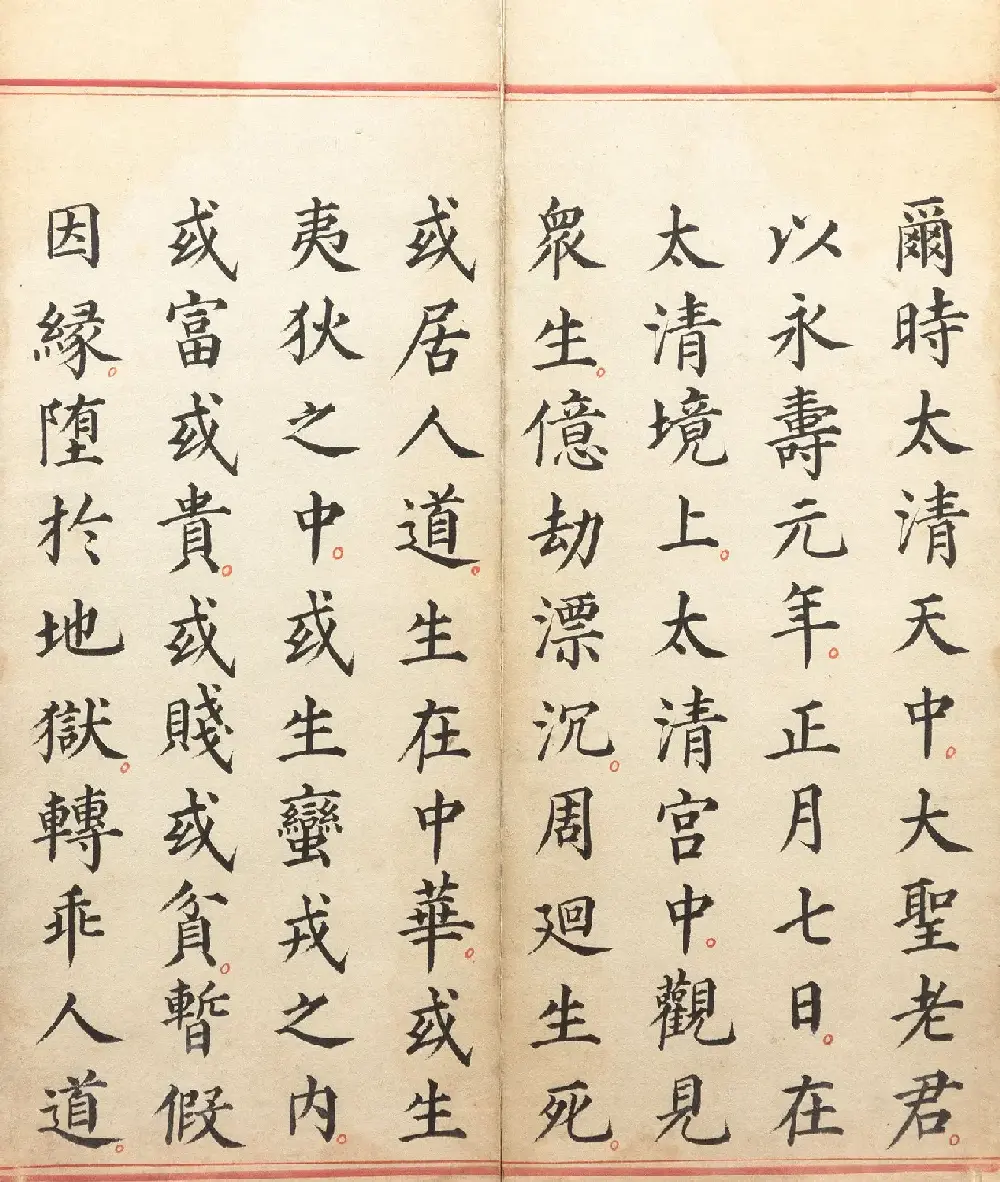 爾時太清天中。大聖老君。
以永壽元年。正月七日。在
太清境上。太清宮中。觀見
衆生。億劫漂沉。周廻生死。
或居人道。生在中華。或生
夷狄之中。或生蠻戎之内。
或富或貴。或賤或貧。暫假
因縁。堕於地獄。轉乖人道。